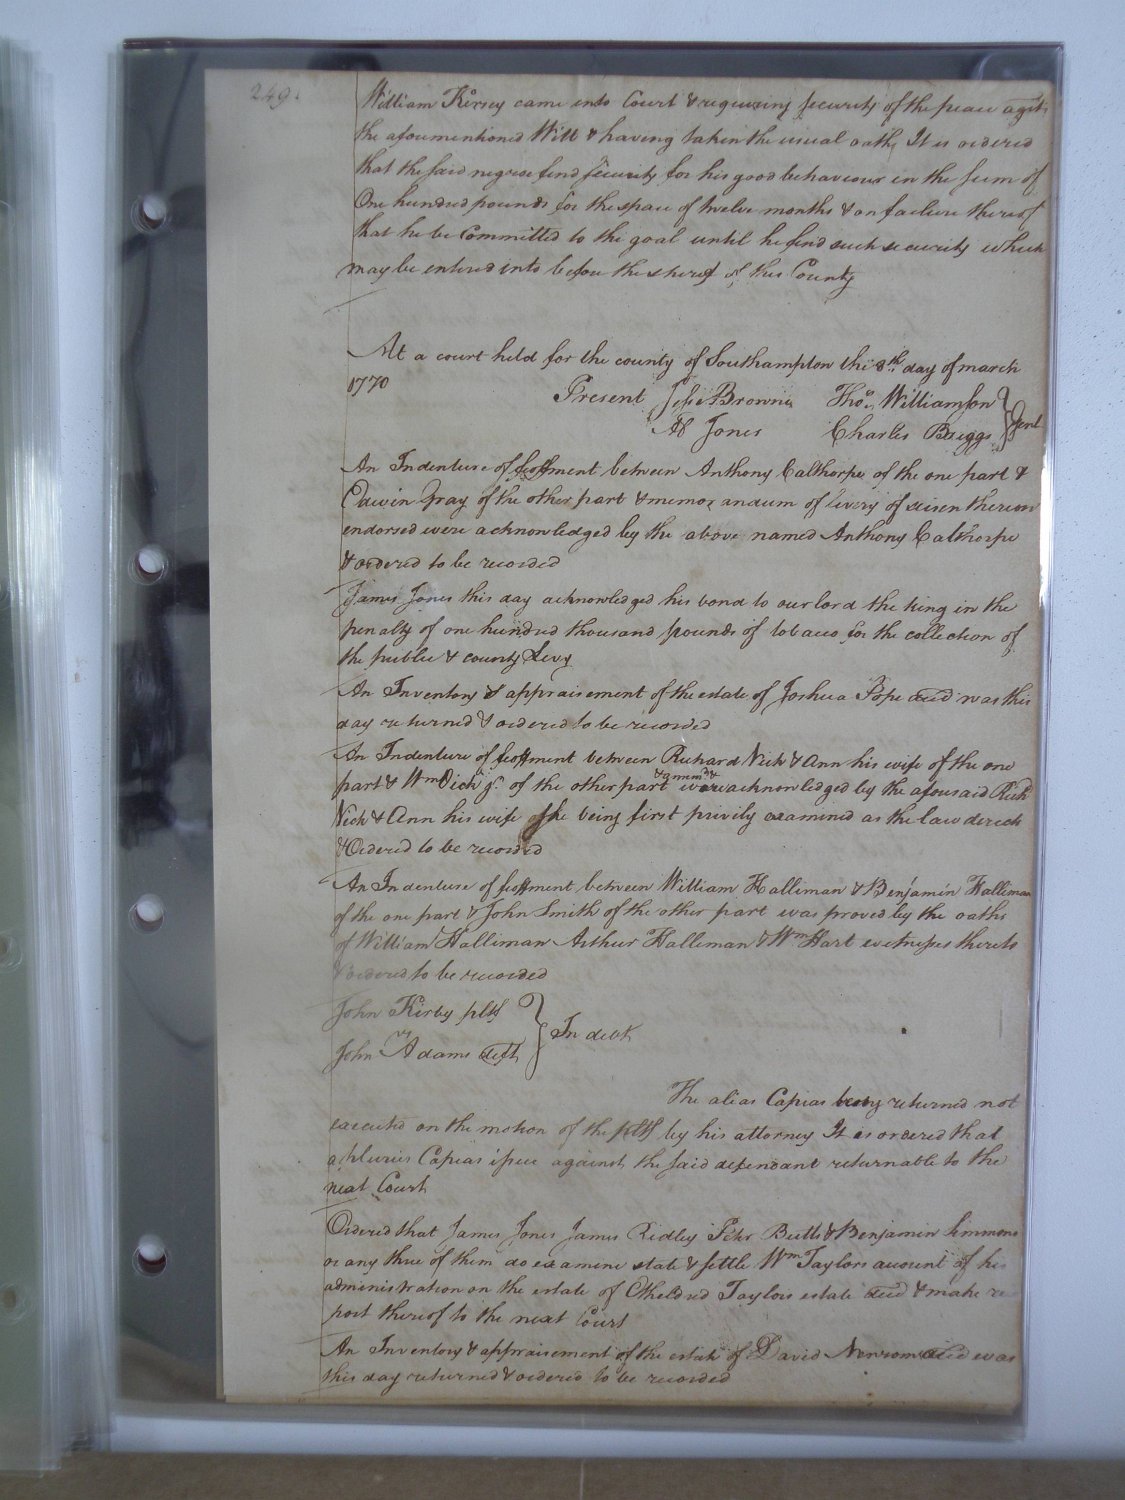 249.
William Kersey came into Court & requiring security of the peace agst
the aforementioned Will & having taken the usual oath, It is ordered
that the said negroe find security for his good behaviour in the sum of
One hundred pounds for the space of twelve months & on failure thereof
that he be Committed to the goal until he find such security which
may be entered into before the sherif of this County
At a court held for the county of Southampton the 8th day of march
1770
Present Jesse Browne Thos. Williamson
Jones Charles Briggs Gent
An Indenture of feoffment between Anthony Calthorpe of the one part &
Edwin Gray of the other part & memorandum of livery of seisen thereon
endorsed were acknowledged by the above named Anthony Calthorpe
& ordered to be recorded
James Jones this day acknowledged his bond to our lord the king in the
penalty of one hundred thousand pounds of tobacco for the collection of
the public & county Levy
An Inventory & appraisement of the estate of Joshua Pope decd was this
day returned & ordered to be recorded
An Indenture of feoffment between Richard Vick & Ann his wife of the one
part & Wm of the other part were acknowledged by the afousaid Rich
Vick & Ann his wife she being first privily examined as the law derects
& Ordered to be recorded
An Indenture of feoffment between William Halliman & Benjamin Halliman
of the one part & John Smith of the other part was proved by the oaths
of William Halliman Arthur Halliman & Wm Hart witnesses thereto
& ordered to be recorded
John Kirby plt
vs In debt
John Adams deft
The alias Capias being returned not
executed on the motion of the plt by his attorney It is ordered that
a pluries Capias issue against the said defendant returnable to the
next Court
Ordered that James Jones James Ridley Petr Butts & Benjamin Simmons
or any three of them do examine state & settle Wm Taylors account of his
administration on the estate of Etheldred Taylors estate decd & make re
port thereof to the next Court
An Inventory & appraisement of the estate of David Newsom decd was
this day returned & ordered to be recorded